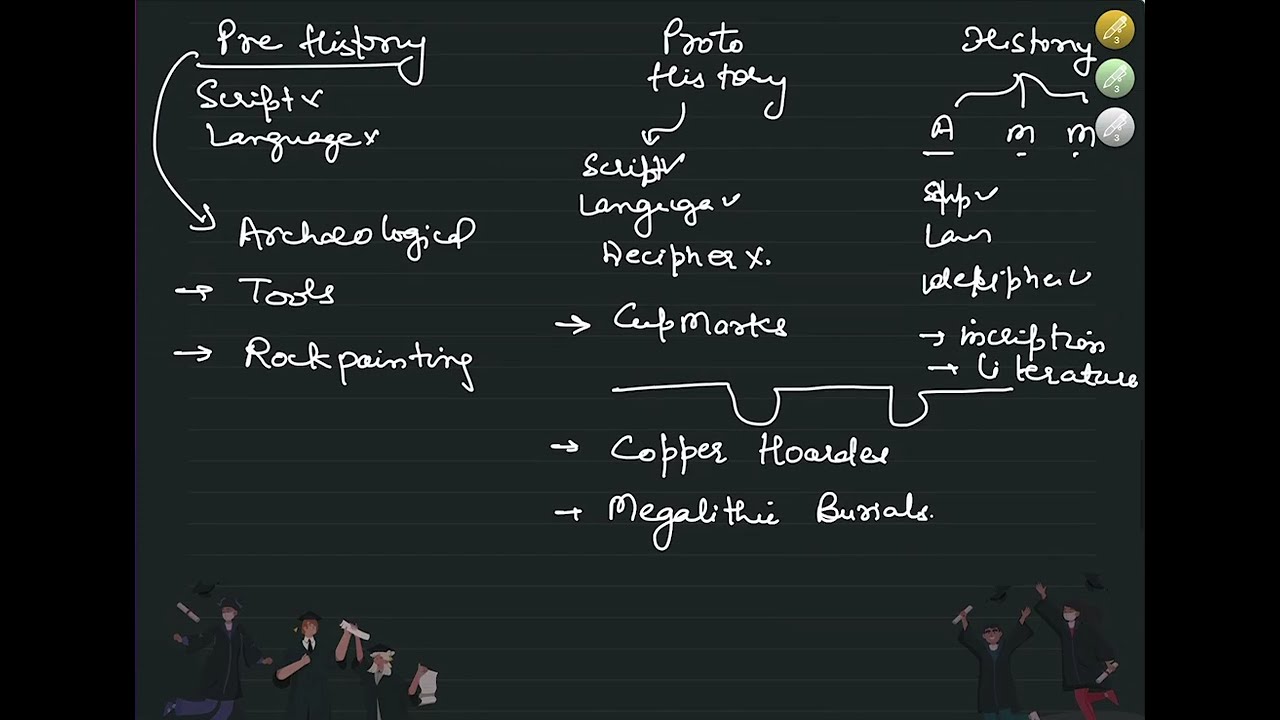 Pre History
Script x
Language x
Archaeological
→ Tools
→ Rockpainting
Proto
History
Script ✓
Language ✓
Decipher x.
→ CupMarks
→ Copper Hoardes
→ Megalithic Burials.
History
A m m
✓
decipher ✓
→ inscription
→ Literature
3
3
3